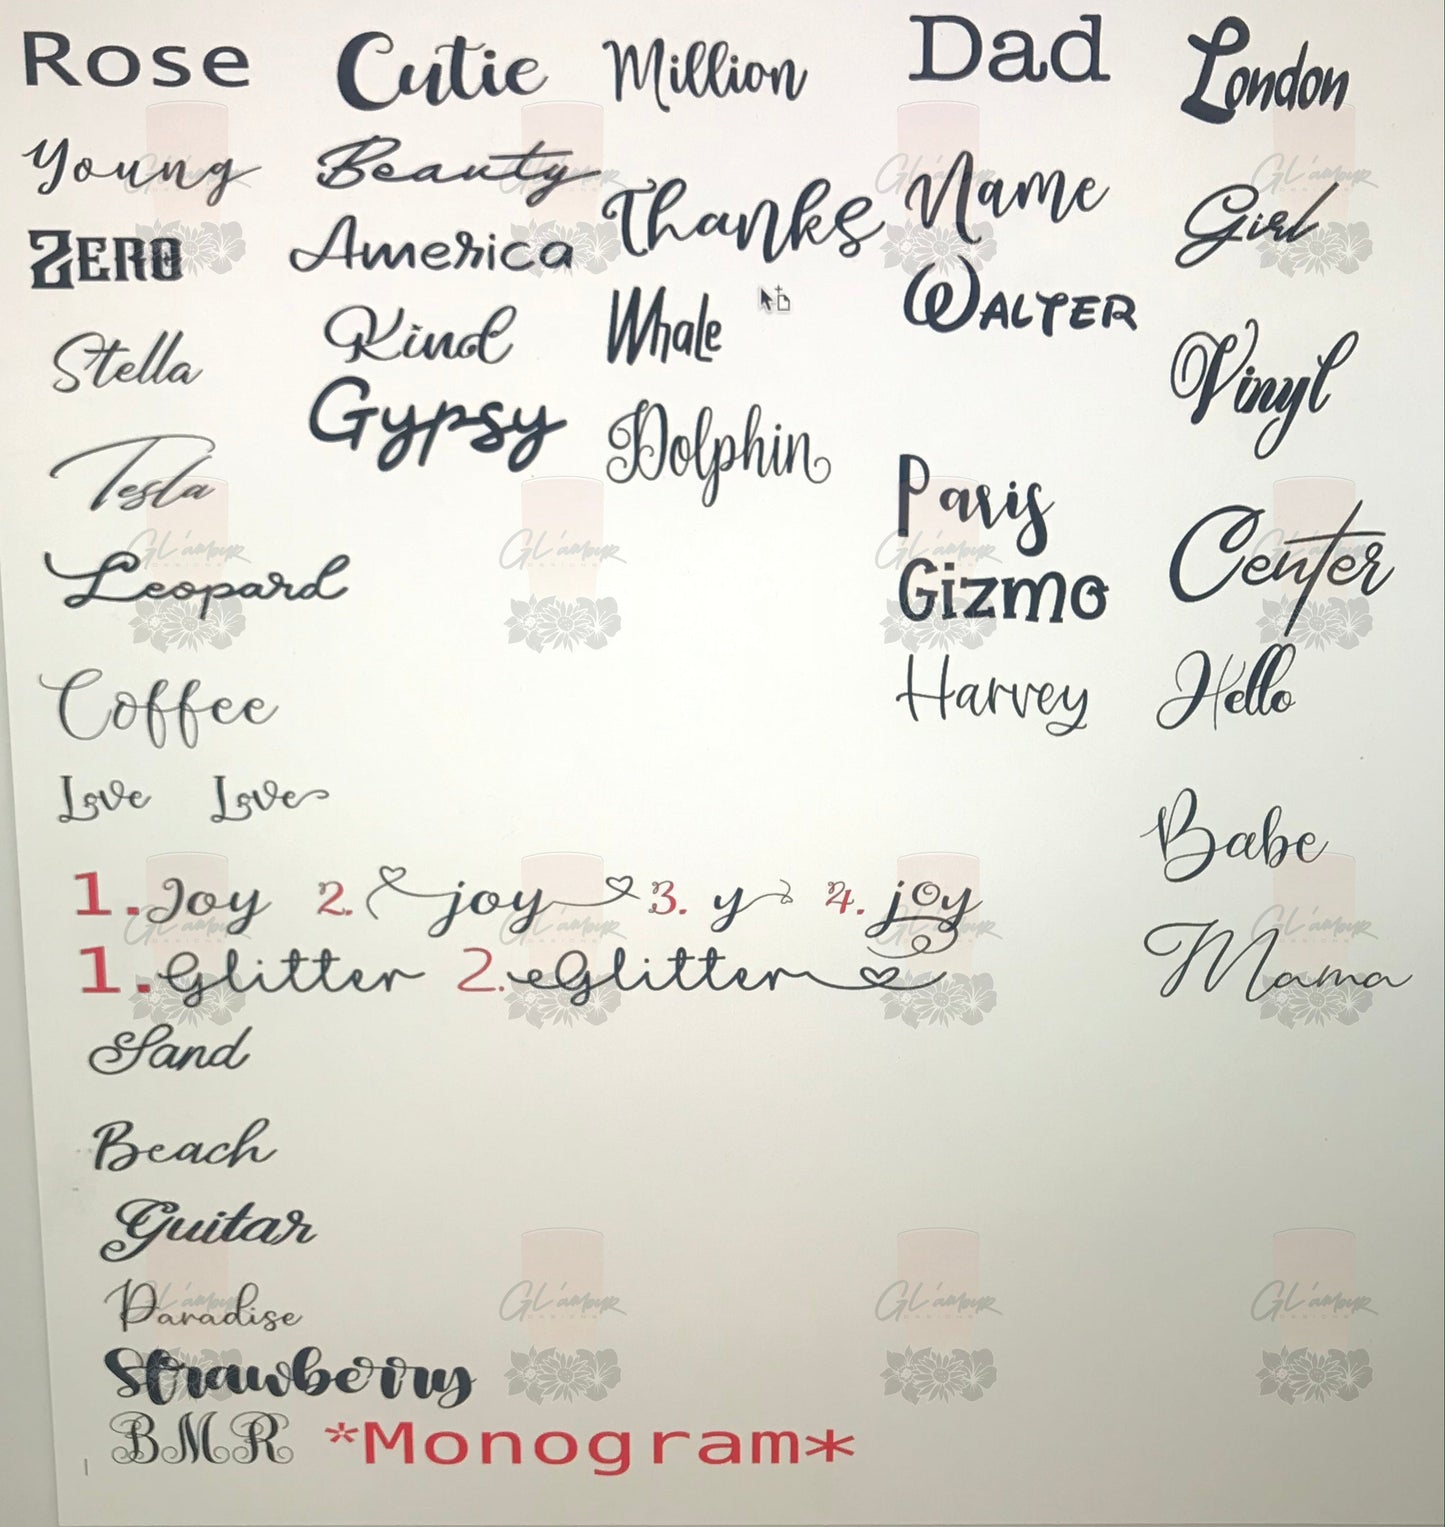 Rose Cutie Million Dad London
Young Beauty Thanks Name Girl
ZERO America Whale WALTER Vinyl
Stella Kind Dolphin Paris Center
Tesla Gypsy Gizmo Hello
Leopard Harvey Babe
Coffee Mama
Love Love
1. Joy 2. joy 3. y 4. joy
1. Glitter 2. Glitter
Sand
Beach
Guitar
Paradise
Strawberry
BMR *Monogram*
GL'amour
DESIGNS